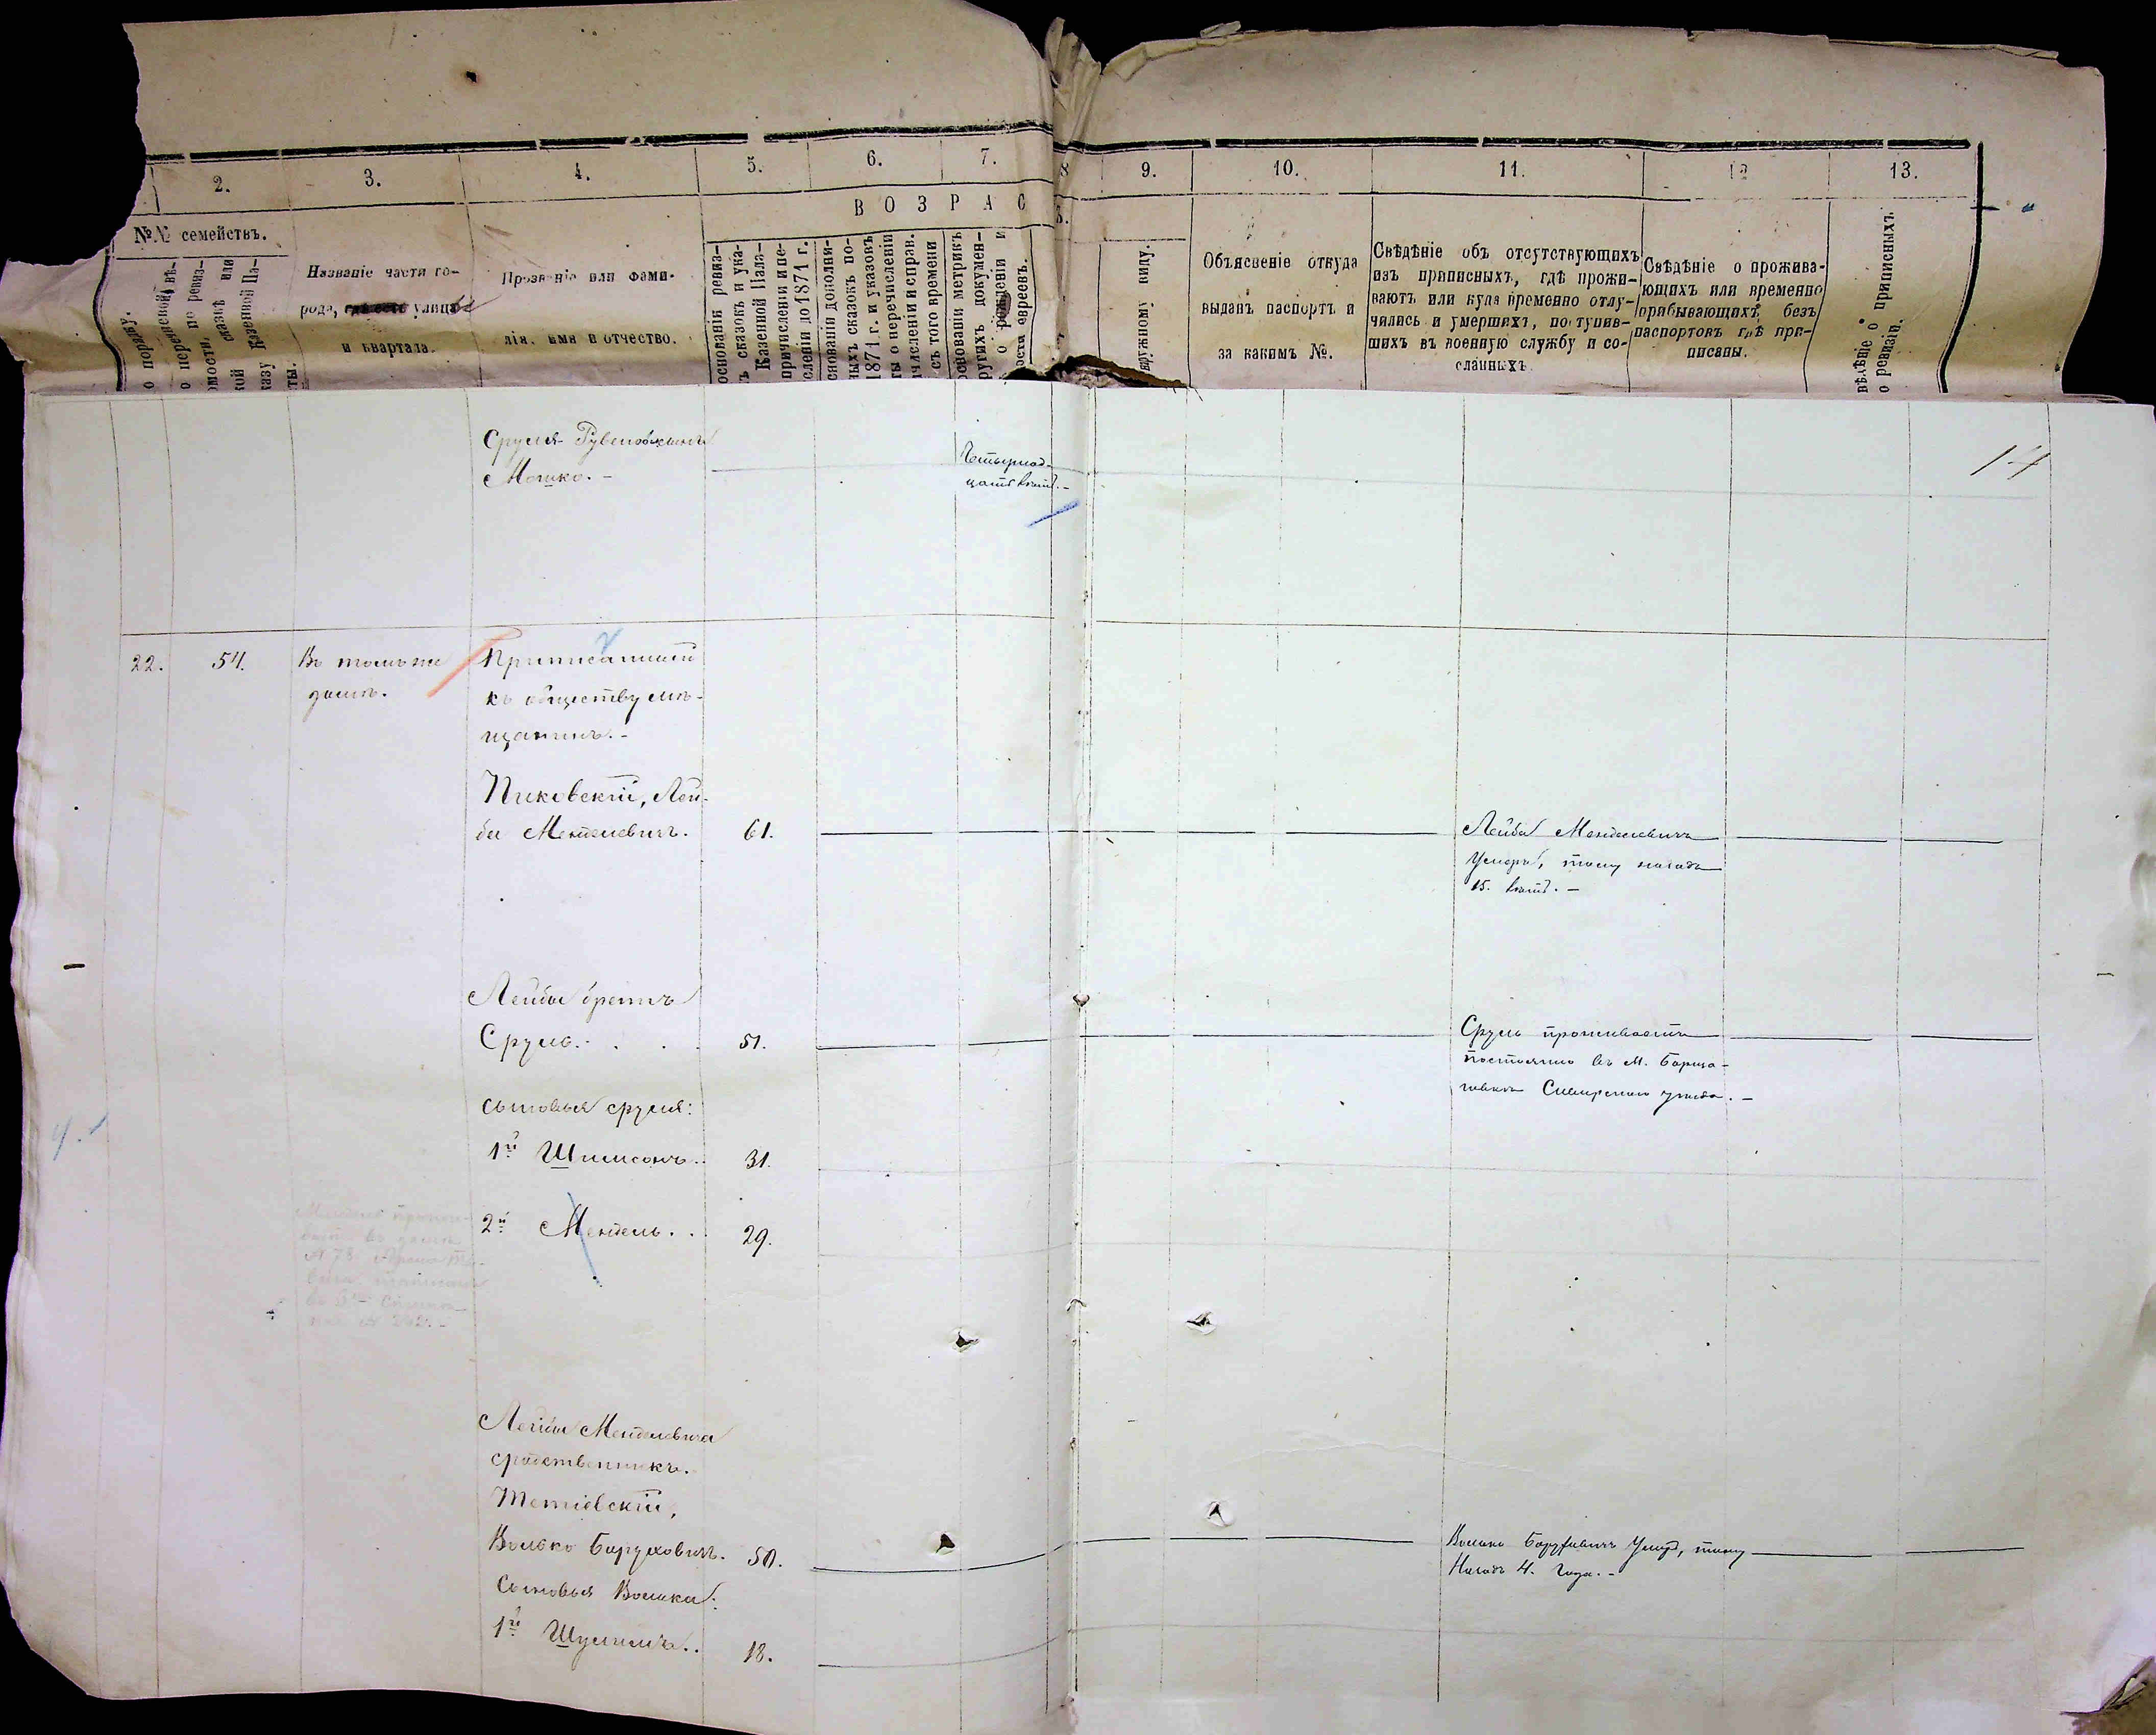 2. 3. 4. 5. 6. 7. 8 9. 10. 11. 12 13.
В О З Р А С
№№ семействъ.
о порядку.
Название части го-
рода, улицы
и квартала.
Прозвание или фами-
лія, имя и отчество.
основаніи ревиз-
ъ сказокъ и ука-
Казенной Пала-
причисленіи и пе-
сленіи до 1871 г.
снованіи дополни-
ныхъ сказокъ по-
1871 г. и указовъ
ты о перечисленіи
ичисленіи исправ.
съ того времени
основаніи метрикъ
ругихъ докумен-
о рожденіи и
ости евреевъ.
аружному виду.
Объясненіе откуда
выданъ паспортъ и
за какимъ №.
Свѣдѣніе объ отсутствующихъ
изъ приписныхъ, гдѣ прожи-
ваютъ или куда временно отлу-
чились и умершихъ, поступив-
шихъ въ военную службу и со-
сланныхъ
Свѣдѣніе о прожива-
ющихъ или временно
прибывающихъ безъ
паспортовъ гдѣ при-
писаны.
вѣдѣніе о приписныхъ
о ревизіи.
Сруля Рубеновича сынъ
Мошко. -
Четырнад-
цать лѣтъ. -
22. 54. Въ томъ же
домѣ.
Приписанный
къ обществу мѣ-
щанинъ. -
Пиковскій, Лей-
ба Менделевичъ. 61.
Лейба Менделевичъ
Умеръ, тому назадъ
15. лѣтъ. -
Лейбы братъ
Сруль. . . . 51.
Сруль проживаетъ
постоянно въ М. Борща-
говкѣ Сквирскаго уѣзда. -
сыновья сруля:
1й Шимсонъ.. 31.
2й Мендель. . . 29.
Лейбы Менделевича
сродственникъ.
Тетіевскій,
Волько Баруховичъ. 50.
Волько Баруховичъ Умеръ, тому
Назадъ 4. Года. -
Сыновья Волька:
1й Шулимъ.. 18.